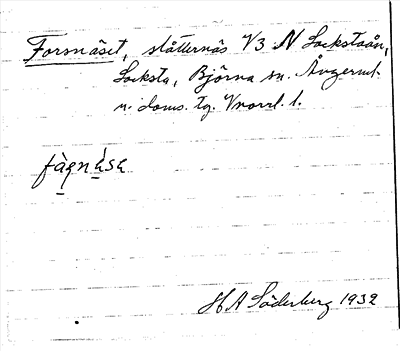 Forsnäset, slåtternäs V3 N Locksteån,
Locksta, Björna sn. Ångerml.
n. doms. tg. Vnorrl. l.
H A Söderberg 1932